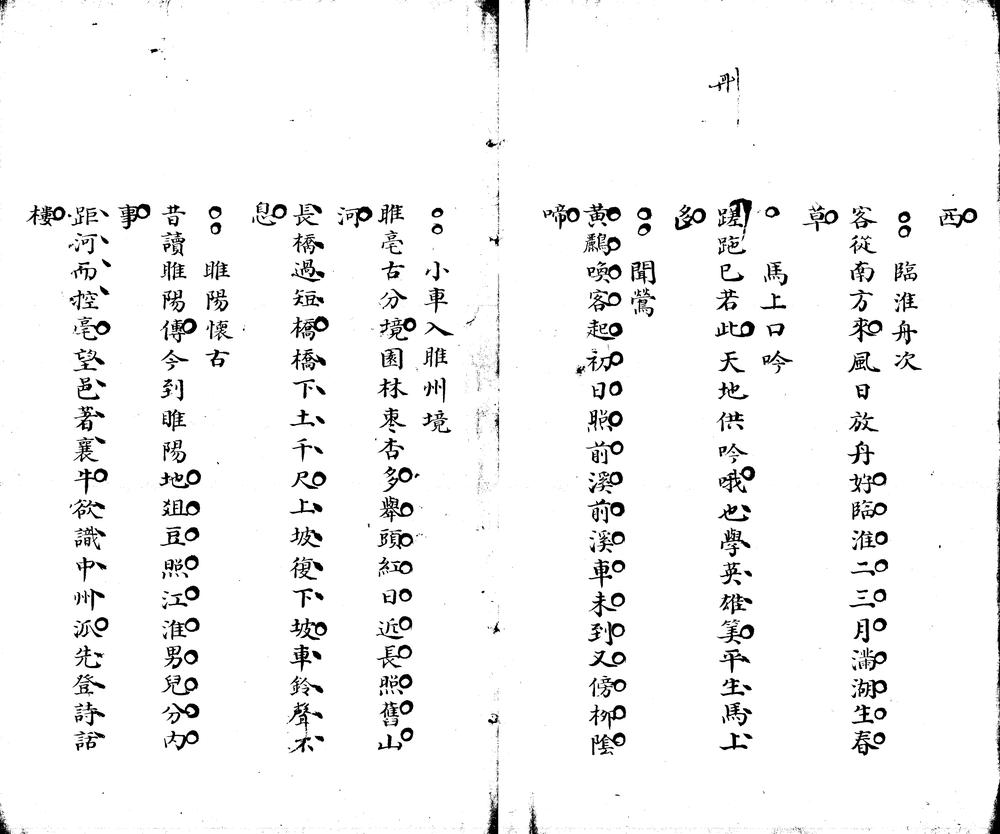 西
臨淮舟次
客從南方來風日放舟好臨淮二三月滿湖生春
草
馬上口吟
蹉跎已若此天地供吟哦也學英雄筭平生馬上
多
聞鶯
黃鸝喚客起初日照前溪前溪車未到又傍柳陰
啼
小車入睢州境
睢亳古分境園林棗杏多舉頭紅日近長照舊山
河
長橋過短橋橋下土千尺上坡復下坡車鈴聲不
息
睢陽懷古
昔讀睢陽傳今到睢陽地俎豆照江淮男兒分內
事
距河而控亳望邑著襄牛欲識中州派先登詩話
樓